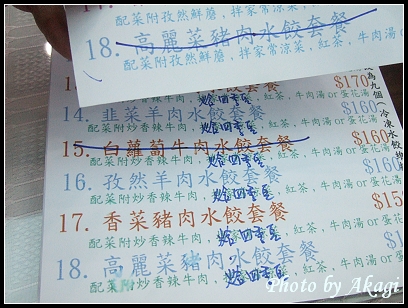 配菜附孜然鮮蘑，拌家常涼菜，紅茶，
18. 高麗菜豬肉水餃套餐
配菜附孜然鮮蘑，拌家常涼菜，紅茶，牛肉
$170
14. 韭菜羊肉水餃套餐 $160
配菜附炒香辣牛肉，紅茶，牛肉湯or蛋花湯
15. 白蘿蔔牛肉水餃套餐 $160
配菜附炒香辣牛肉，紅茶，牛肉湯or蛋花湯
16. 孜然羊肉水餃套餐 $160
配菜附炒香辣牛肉，紅茶，牛肉湯or蛋花湯
17. 香菜豬肉水餃套餐 $15
配菜附炒香辣牛肉，紅茶，牛肉湯or蛋花
18. 高麗菜豬肉水餃套餐
配菜附炒香辣牛肉，紅茶，牛肉湯or
為九個(冷凍水餃
Photo by Akagi